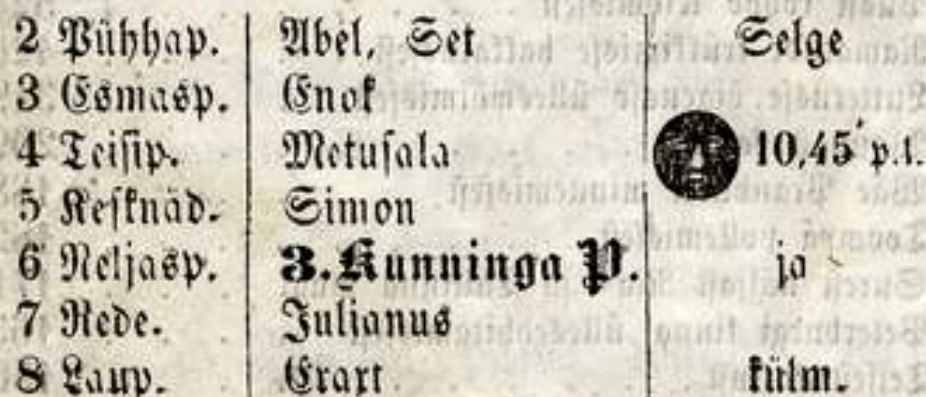 2 Pühhap. Abel, Set Selge
3 Esmasp. Enok
4 Teisip. Metusala 10,45 p.l.
5 Kesknäd. Simon
6 Neljasp. 3. Kunninga P. ja
7 Rede. Julianus
8 Laup. Erart külm.